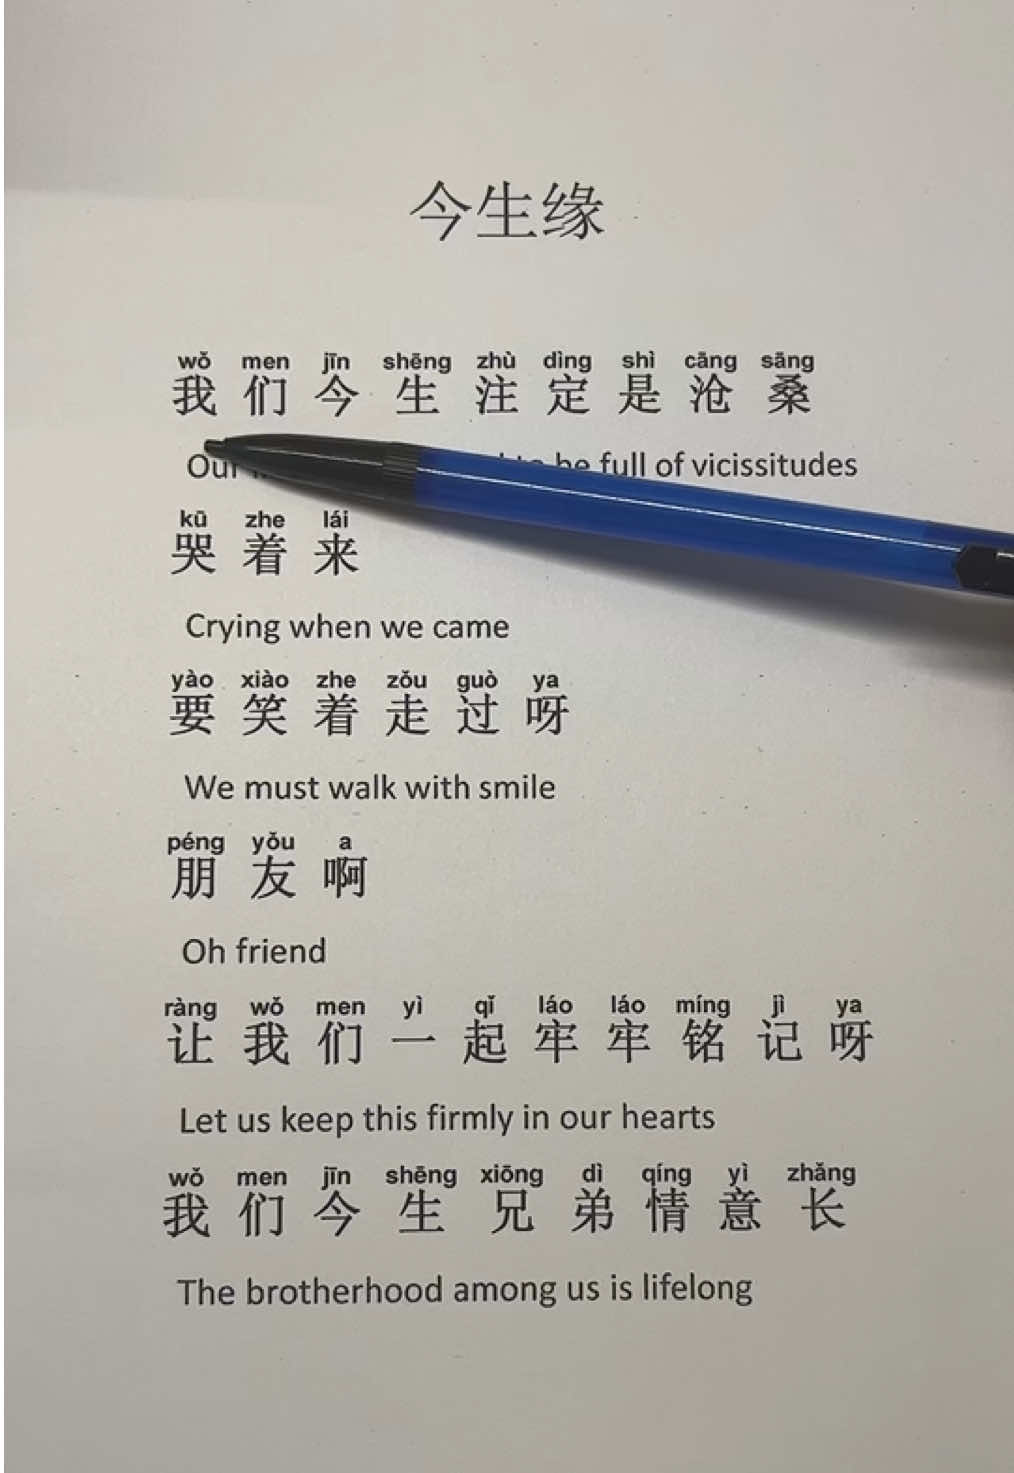 今生缘
wǒ men jīn shēng zhù dìng shì cāng sāng
我们今生注定是沧桑
Our be full of vicissitudes
kū zhe lái
哭着来
Crying when we came
yào xiào zhe zǒu guò ya
要笑着走过呀
We must walk with smile
péng yǒu a
朋友啊
Oh friend
ràng wǒ men yì qǐ láo láo míng jì ya
让我们一起牢牢铭记呀
Let us keep this firmly in our hearts
wǒ men jīn shēng xiōng dì qíng yì zhǎng
我们今生兄弟情意长
The brotherhood among us is lifelong